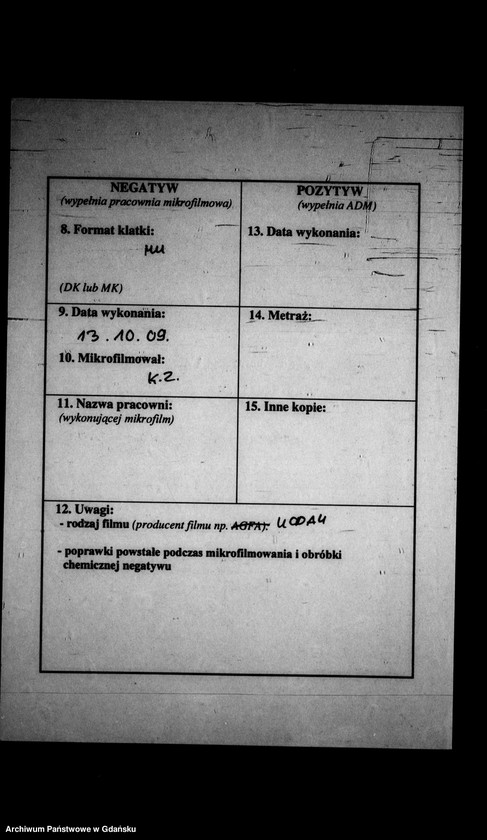 NEGATYW
(wypełnia pracownia mikrofilmowa)
8. Format klatki:
(DK lub MK)
9. Data wykonania:
13.10.09.
10. Mikrofilmował:
K.Z.
11. Nazwa pracowni:
(wykonującej mikrofilm)
POZYTYW
(wypełnia ADM)
13. Data wykonania:
14. Metraż:
15. Inne kopie:
12. Uwagi:
- rodzaj filmu (producent filmu np. AGFA):
- poprawki powstałe podczas mikrofilmowania i obróbki
chemicznej negatywu
Archiwum Państwowe w Gdańsku